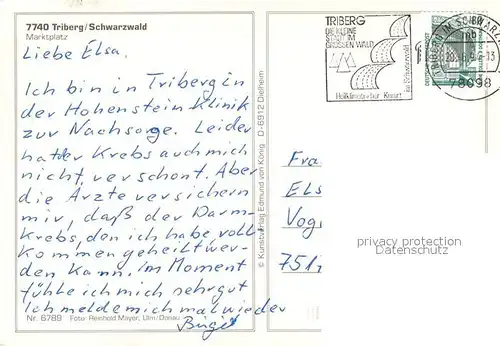 7740 Triberg/Schwarzwald
Marktplatz
Liebe Elsa.
Ich bin in Triberg in
der Hohenstein Klinik
zur Nachsorge. Leider
hat der Krebs auch mich
nicht verschont. Aber
die Ärzte versichern
mir, daß der Darm-
krebs, den ich habe voll
kommen geheilt wer-
den kann. Im Moment
fühle ich mich sehr gut
Ich melde mich mal wieder
Birgit
Nr. 6789 Foto: Reinhold Mayer, Ulm/Donau
© Kunstverlag Edmund von König · D-6912 Dielheim
TRIBERG
DIE KLEINE
STADT IM
GROSSEN WALD
Heilklimatischer Kurort
im Schwarzwald
TRIBERG IM SCHWARZW
mb
13
78098
DEUTSCHE BUNDESPOST
Fra
Els
Vog
751
privacy protection
Datenschutz